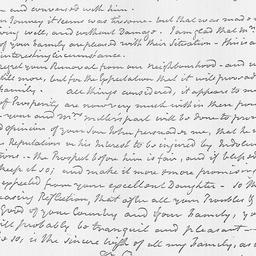 and conversed with him.
Journey it seems was tiresome - but that was made
ing well, and without Damage. I am glad that Mr.
of your Family are pleased with their Situation - this is a
interesting circumstance.
regret your Removal from our Neighbourhood - and w
still more, but for the Expectation that it will prove as
Family. All things considered, it appears to m
of Prosperity are now very much within their pow
- your and Mrs. Miller's part will be done to prom
d opinion of your Son John persuades me, that he w
Reputation or his Interest to be injured by Indolen
ions - the Prospect before him is fair, and if blessed
keep it so; and make it more & more promising
expected from your excellent Daughter - so th
easing Reflection, that after all your Troubles &
Good of your Country and of your Family, yo
will probably be tranquil and pleasant -
so, is the sincere wish of all my Family, as